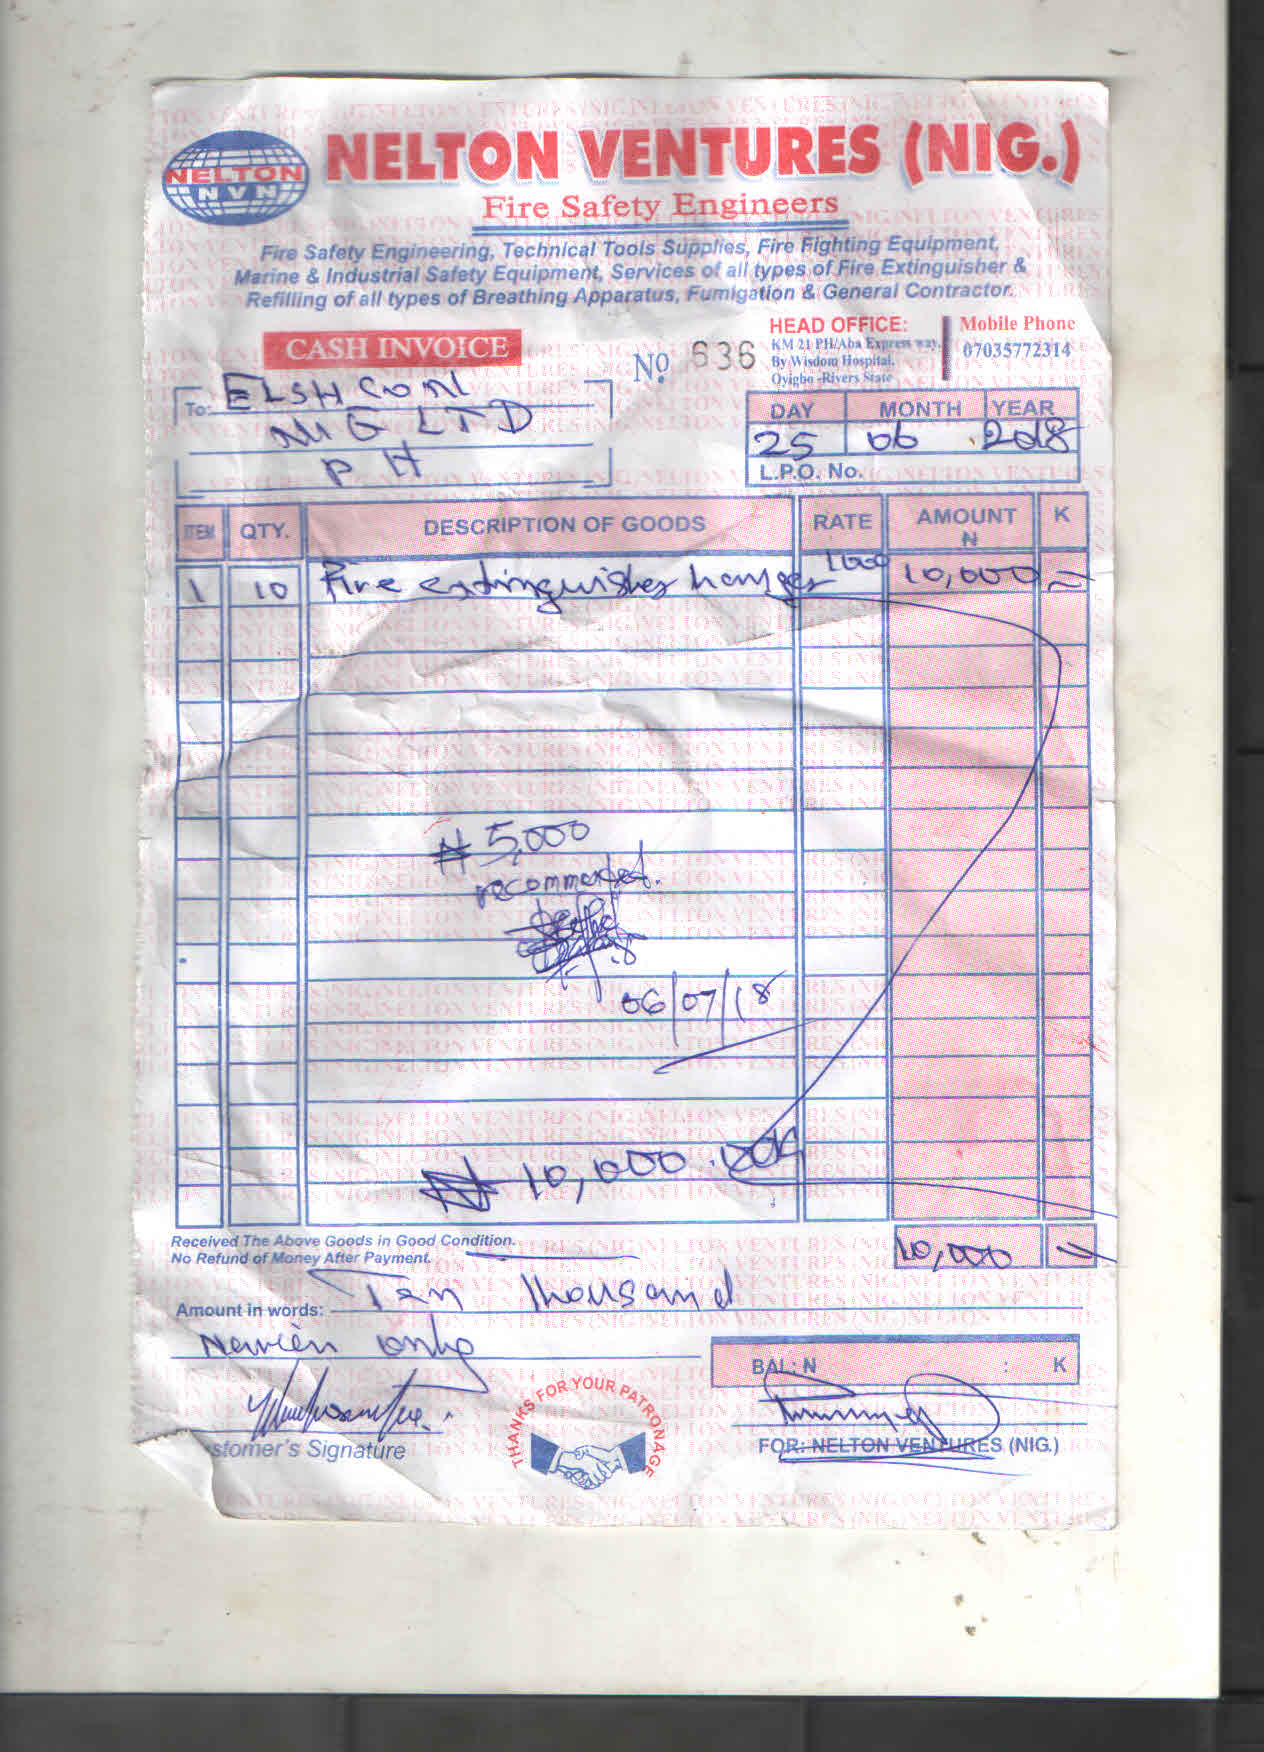 NELTON
NVN
NELTON VENTURES (NIG.)
Fire Safety Engineers
Fire Safety Engineering, Technical Tools Supplies, Fire Fighting Equipment,
Marine & Industrial Safety Equipment, Services of all types of Fire Extinguisher &
Refilling of all types of Breathing Apparatus, Fumigation & General Contractor.
CASH INVOICE
No. 636
HEAD OFFICE:
KM 21 PH/Aba Express way,
By Wisdom Hospital,
Oyigbo -Rivers State
Mobile Phone
07035772314
To: ELSHCON
NIG LTD
PH
DAY MONTH YEAR
25 06 2018
L.P.O. No.
ITEM QTY. DESCRIPTION OF GOODS RATE AMOUNT K
N
1 10 Fire extinguisher hanger 1000 10,000 =
₦ 5,000
recommended.
06/07/18
₦ 10,000
10,000
Received The Above Goods in Good Condition.
No Refund of Money After Payment.
Amount in words: Ten Thousand
Naira only
BAL: N : K
stomer's Signature
THANKS FOR YOUR PATRONAGE
FOR: NELTON VENTURES (NIG.)